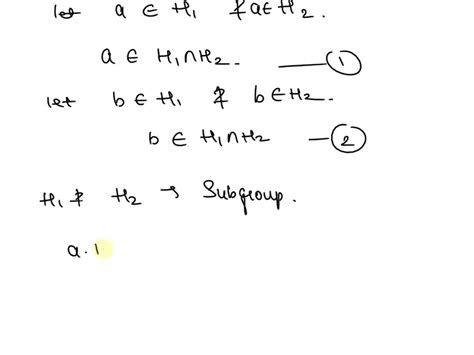 let a ∈ H₁ & a ∈ H₂.
a ∈ H₁∩H₂. —— ①
let b ∈ H₁ & b ∈ H₂.
b ∈ H₁∩H₂ — ②
H₁ & H₂ → Subgroup.
a.